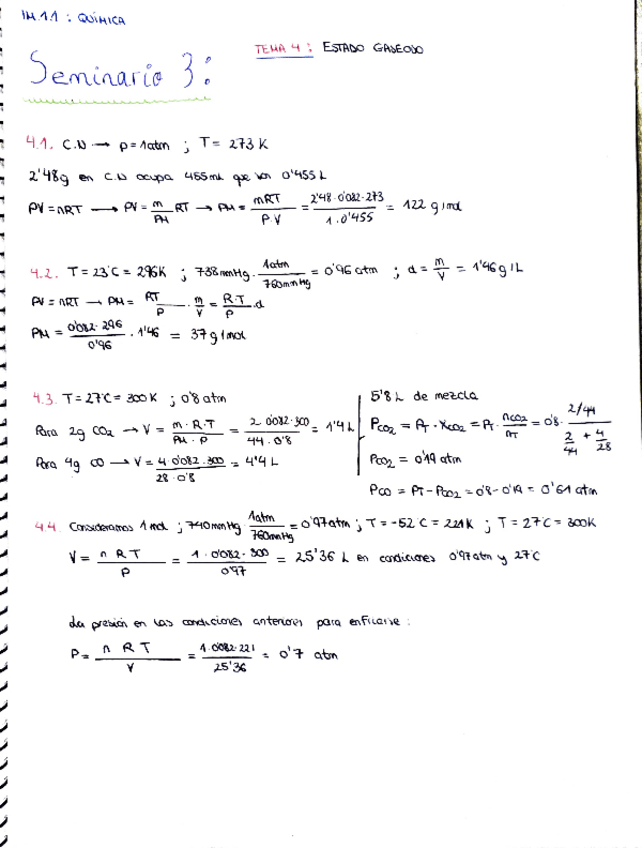 IM.1.1 : QUÍMICA
TEMA 4 : ESTADO GASEOSO
Seminario 3:
4.1. C.N → p = 1atm ; T = 273 K
2'48g en C.N ocupa 455mL que son 0'455 L
PV = nRT → PV = m/PM RT → PM = mRT/P.V = 2'48·0'082·273/1·0'455 = 122 g/mol
4.2. T = 23°C = 296K ; 738mmHg · 1atm/760mmHg = 0'96 atm ; d = m/V = 1'46 g/L
PV = nRT → PM = RT/P · m/V = R·T/P · d
PM = 0'082·296/0'96 · 1'46 = 37 g/mol
4.3. T = 27°C = 300K ; 0'8 atm
Para 2g CO₂ → V = m·R·T/PM·P = 2·0'082·300/44·0'8 = 1'4 L
Para 4g CO → V = 4·0'082·300/28·0'8 = 4'4 L
5'8 L de mezcla
P_CO₂ = P_T · X_CO₂ = P_T · n_CO₂/n_T = 0'8 · 2/44 / 2/44 + 4/28
P_CO₂ = 0'19 atm
P_CO = P_T - P_CO₂ = 0'8 - 0'19 = 0'61 atm
4.4. Consideramos 1 mol ; 740mmHg · 1atm/760mmHg = 0'97atm ; T = -52°C = 221K ; T = 27°C = 300K
V = n R T/P = 1·0'082·300/0'97 = 25'36 L en condiciones 0'97atm y 27°C
La presión en las condiciones anteriores para enfriarse :
P = n R T/V = 1·0'082·221/25'36 = 0'7 atm